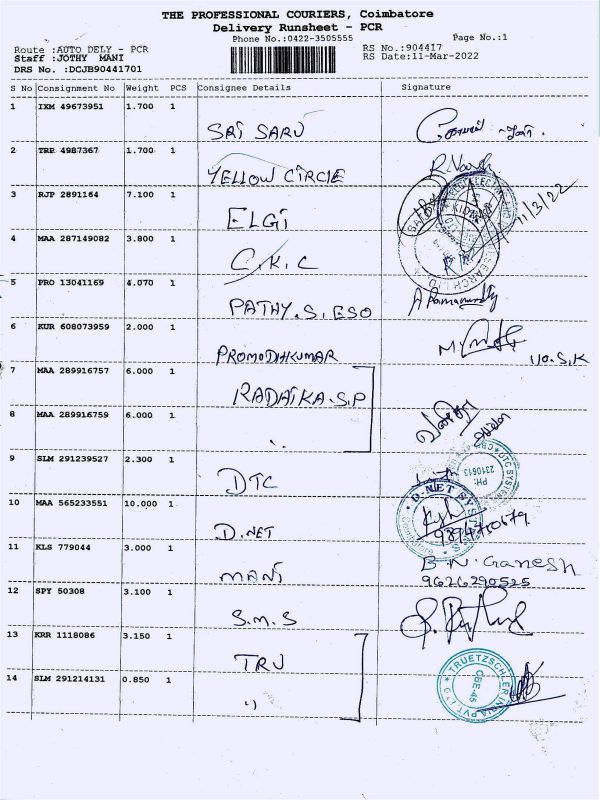 THE PROFESSIONAL COURIERS, Coimbatore
Delivery Runsheet - PCR
Phone No.:0422-3505555
Page No.:1
Route :AUTO DELY - PCR
RS No.:904417
Staff :JOTHY MANI
RS Date:11-Mar-2022
DRS No. :DCJB90441701
S No Consignment No Weight PCS Consignee Details Signature
1 IXM 49673951 1.700 1
SRI SARU
2 TRP 4987367 1.700 1
YELLOW CIRCLE
3 RJP 2891164 7.100 1
ELGI 11/3/22
4 MAA 287149082 3.800 1
C.K.C
5 PRO 13041169 4.070 1
PATHY.S, ESO
6 KUR 608073959 2.000 1
PROMODHKUMAR
7 MAA 289916757 6.000 1
RADAIKA.S.P
8 MAA 289916759 6.000 1
9 SLM 291239527 2.300 1
DTC PH: 2310613
10 MAA 565233551 10.000 1
D.NET D-NET
11 KLS 779044 3.000 1
MANI B.N.Ganesh
9626290525
12 SPY 50308 3.100 1
S.M.S
13 KRR 1118086 3.150 1
TRU
14 SLM 291214131 0.850 1
TRUETZSCHLER INDIA PVT. LTD
CBE-45